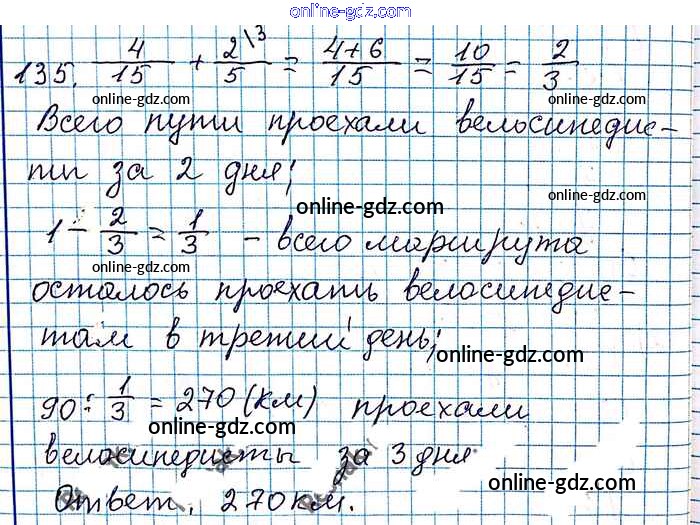 online-gdz.com
135. 4/15 + 2\3/5 = 4+6/15 = 10/15 = 2/3
online-gdz.com online-gdz.com
Всего пути проехали велосипедис-
ты за 2 дня;
online-gdz.com online-gdz.com
1 - 2/3 = 1/3 - всего маршрута
online-gdz.com online-gdz.com
осталось проехать велосипедис-
там в третий день;
online-gdz.com
90 : 1/3 = 270 (км) проехали
online-gdz.com
велосипедисты за 3 дня
online-gdz.com
Ответ. 270 км.